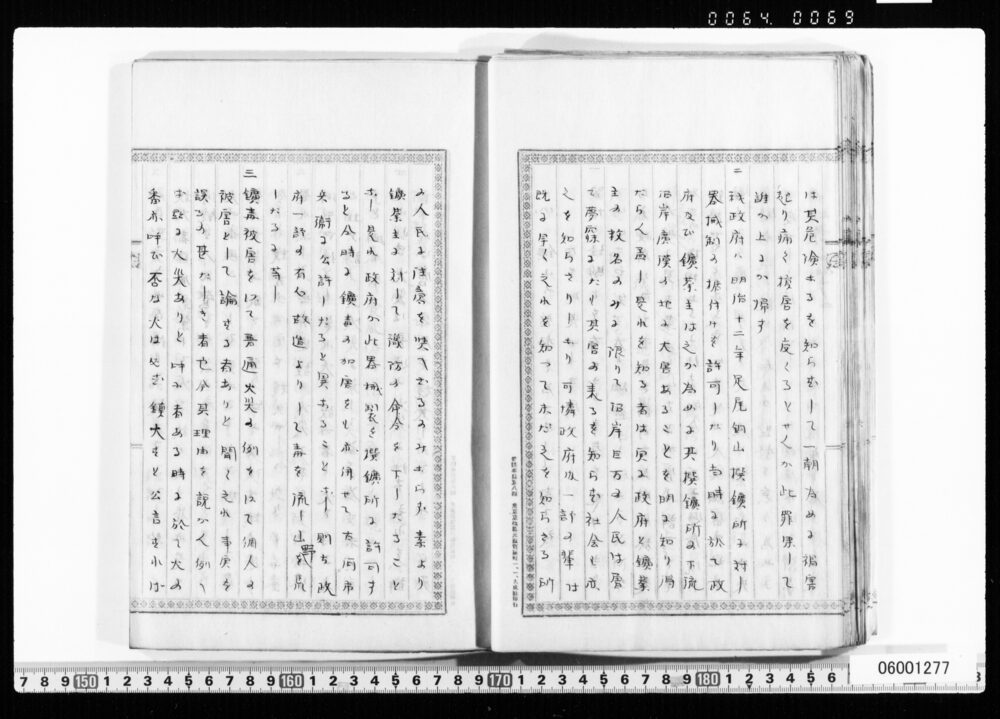 0064. 0069
は其危険なるを知らずして一朝為めに禍害
起り痛く損害を受くるとせんか此罪果して
誰の上にか帰す
二
我政府ハ明治十二年足尾銅山撰鑛所に対し
器械製の据付けを許可したり当時に於て政
府及び鑛業主は之か為めに其撰鑛所の下流
沿岸廣漠の地に大害あることを明に知り得
たらん高し是れを知る者は実に政府と鑛業
主の数名のみに限りて沿岸巨万の人民は曽
て夢寐にだも其害の来るを知らず社会も亦
之を知らざりしなり可憐政府及一部の輩は
既に早く之れを知って未だ之を知らざる所
の人民に注意を與へざるのみならず素より
鑛業主に対して豫防の命令を下したること
なし是れ政府か此器械製を撰鑛所に許可す
ると今時に鑛毒の加害をも亦併せて右両市
兵衞に公許したると異なることなし則ち政
府一部の有心故造よりして毒を流し山野を荒
したるに等し
三
鑛毒被害を以て普通火災の例を以て個人の
被害として論ずる者ありと聞く之れ事実を
誤るの甚だしき者也今其理由を説かん例へ
ば茲に火災ありと呼ぶ者ある時に於て火の
番亦呼び否な火は必ず鎮火すと公言すれば
06001277
7 8 9 150 1 2 3 4 5 6 7 8 9 160 1 2 3 4 5 6 7 8 9 170 1 2 3 4 5 6 7 8 9 180 1 2 3 4 5 6